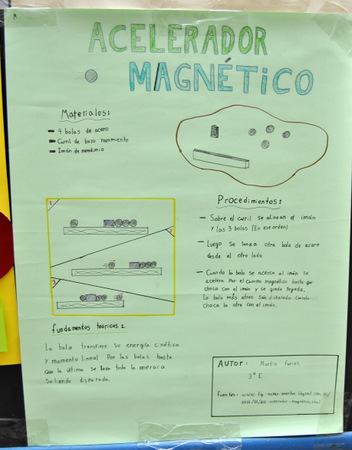 ACELERADOR
MAGNÉTICO
Materiales:
- 4 bolas de acero
- Carril de bajo rozamiento
- Imán de neodimio
1
2
3
Procedimientos:
- Sobre el carril se alinean el imán
y las 3 bolas (En ese orden)
- Luego se lanza otra bola de acero
desde el otro lado
- Cuando la bola se acerca al imán se
acelera por el campo magnético hasta que
choca con el imán y se queda pegada,
la bola más lejos sale disparada cuando
choca la otra con el imán.
fundamentos teóricos:
La bola transfiere su energía cinética
y momento lineal por las bolas hasta
que la última se lleva toda la energía
saliendo disparada.
AUTOR: Martín
3º E
Fuentes: